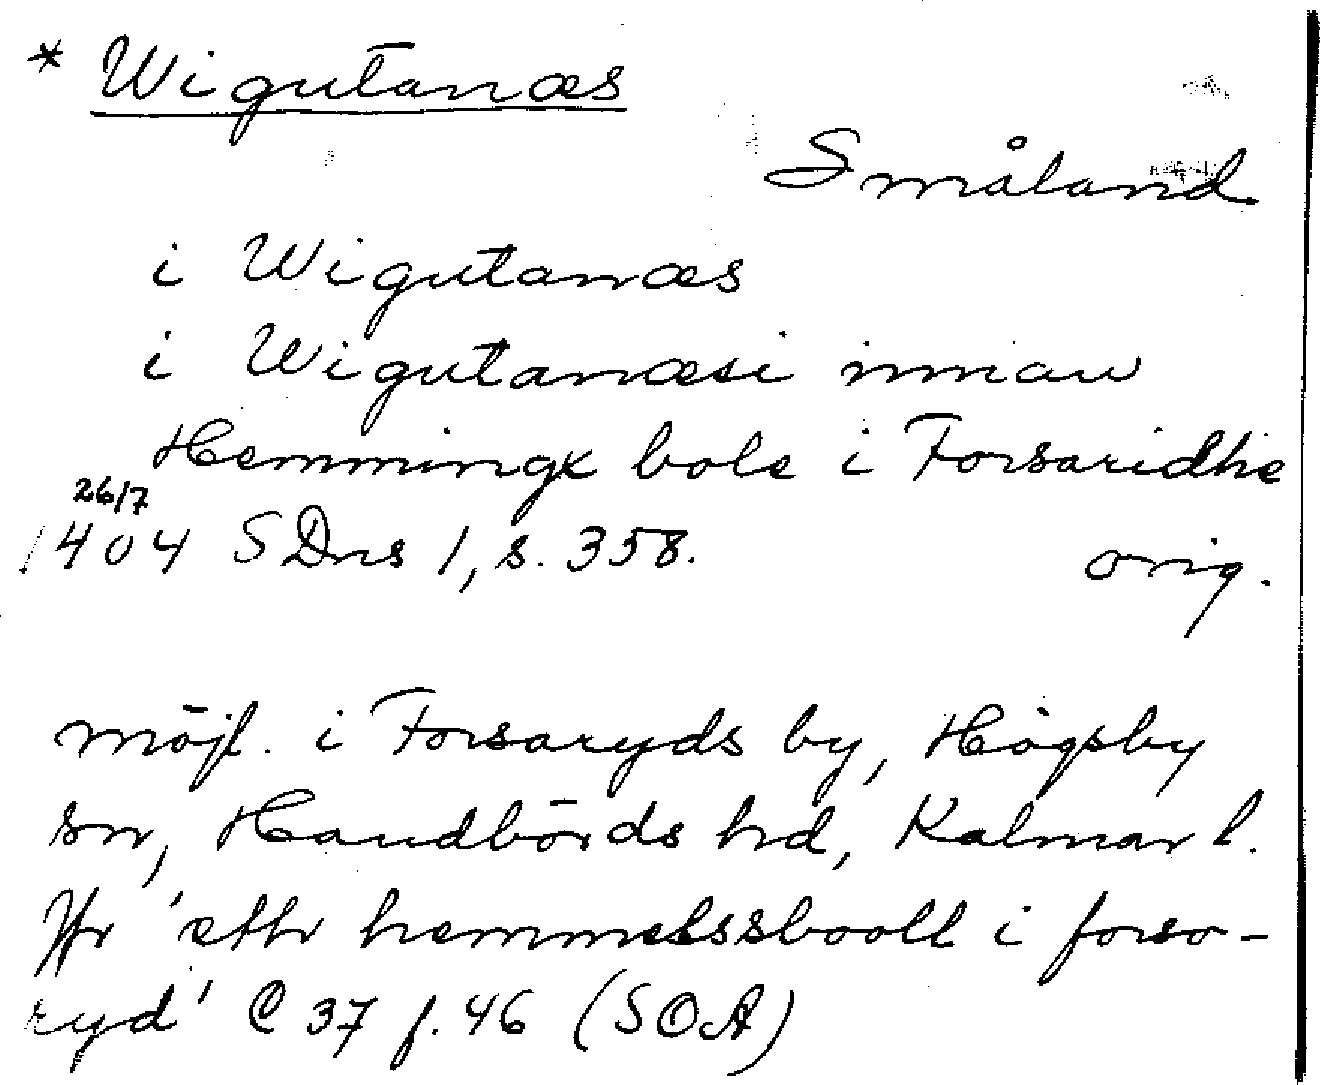 * Wigutanæs
Småland
i Wigutanæs
i Wigutanæsi innian
Hemmingx bole i Forsaridhe
26/7
1404 SDns 1, s. 358. orig.
möjl. i Forsaryds by, Högsby
sn, Handbörds hd, Kalmar l.
Jfr 'etthr hemmelssbooll i forsa-
ryd' C 37 f. 46 (SOA)